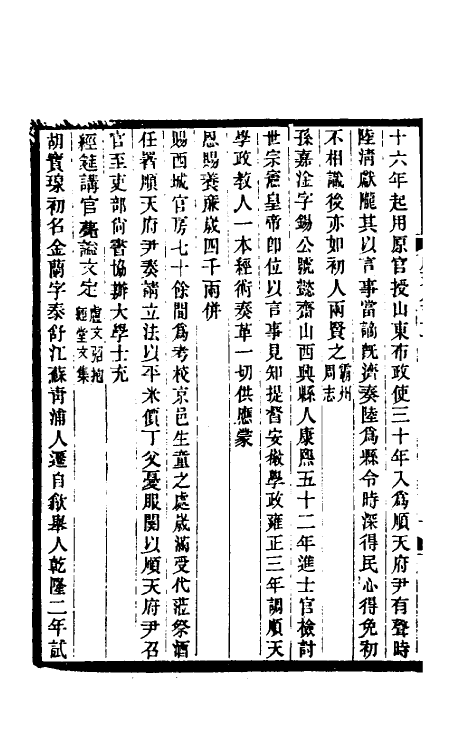 十六年起用原官授山東布政使三十年入爲順天府尹有聲時
陸清獻隴其以言事當謫旣濟奏陸爲縣令時深得民心得免初
不相識後亦如初人兩賢之霸州周志
孫嘉淦字錫公號懿齋山西興縣人康熙五十二年進士官檢討
世宗憲皇帝卽位以言事見知提督安徽學政雍正三年調順天
學政教人一本經術奏革一切供應蒙
恩賜養廉歲四千兩併
賜西城官房七十餘間爲考校京邑生童之處歲滿受代蒞祭酒
任署順天府尹奏請立法以平米價丁父憂服闋以順天府尹召
官至吏部尙書協辦大學士充
經筵講官薨諡文定盧文弨抱經堂文集
胡寶瑔初名金蘭字泰舒江蘇靑浦人遷自歙舉人乾隆二年試